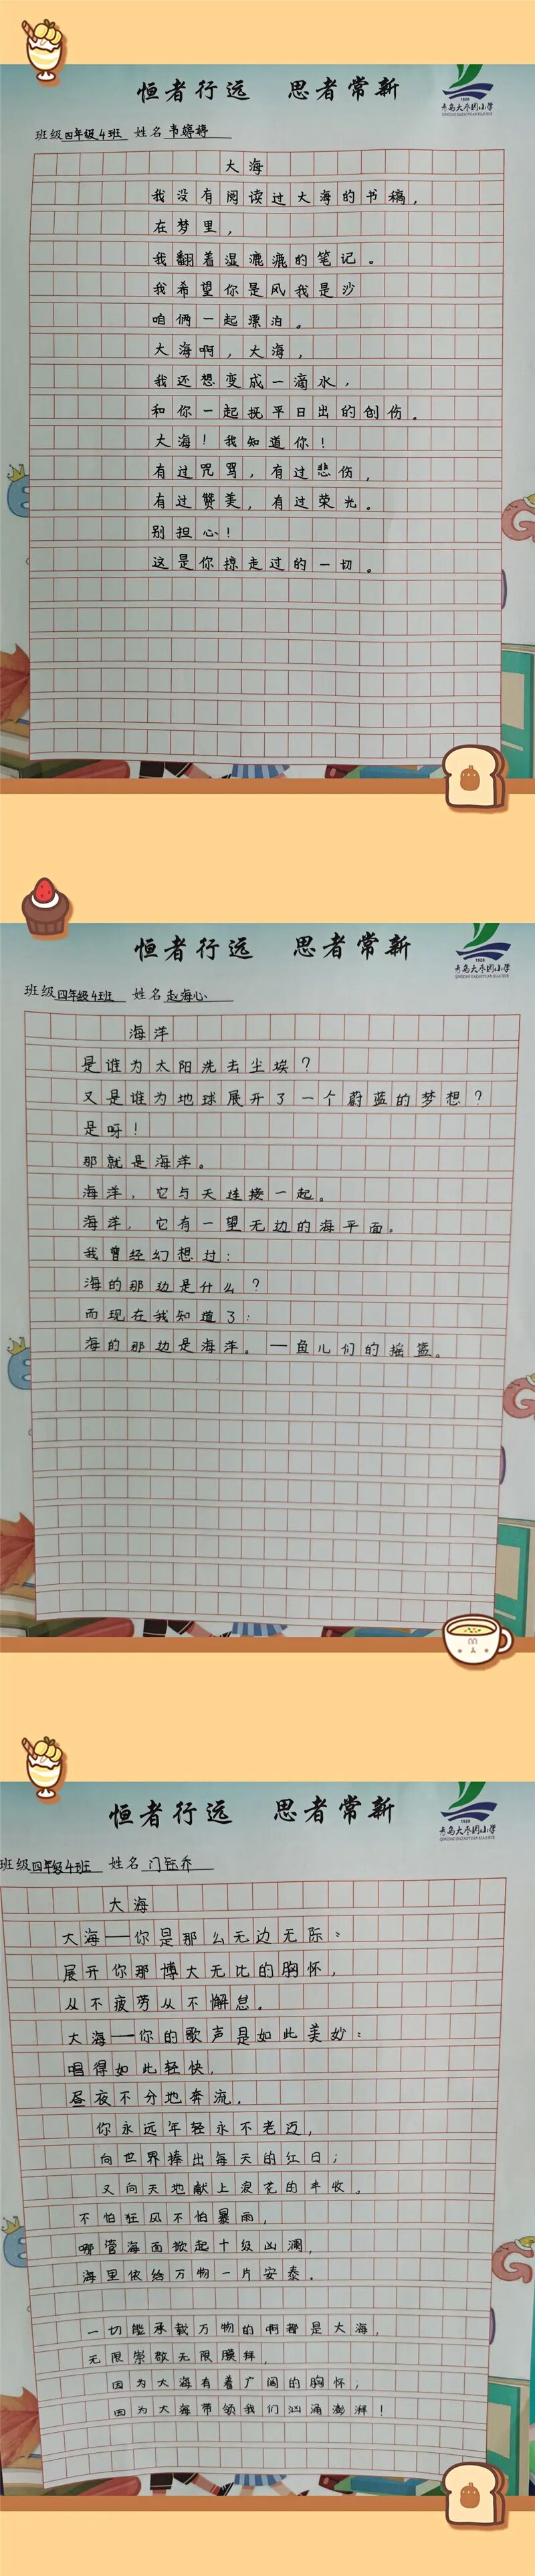 恒者行远 思者常新
1928
青岛大枣园小学
QINGDAO DAZAOYUAN XIAO XUE
班级 四年级4班 姓名 韦婷婷
大海
我没有阅读过大海的书稿，
在梦里，
我翻着湿漉漉的笔记。
我希望你是风我是沙
咱俩一起漂泊。
大海啊，大海，
我还想变成一滴水，
和你一起抚平日出的创伤。
大海！我知道你！
有过咒骂，有过悲伤，
有过赞美，有过荣光。
别担心！
这是你掠走过的一切。
恒者行远 思者常新
1928
青岛大枣园小学
QINGDAO DAZAOYUAN XIAO XUE
班级 四年级4班 姓名 赵海心
海洋
是谁为太阳洗去尘埃？
又是谁为地球展开了一个蔚蓝的梦想？
是呀！
那就是海洋。
海洋，它与天连接一起。
海洋，它有一望无边的海平面。
我曾经幻想过：
海的那边是什么？
而现在我知道了：
海的那边是海洋。—鱼儿们的摇篮。
恒者行远 思者常新
1928
青岛大枣园小学
QINGDAO DAZAOYUAN XIAO XUE
班级 四年级4班 姓名 门钰乔
大海
大海——你是那么无边无际：
展开你那博大无比的胸怀，
从不疲劳从不懈怠。
大海——你的歌声是如此美妙：
唱得如此轻快，
昼夜不分地奔流，
你永远年轻永不老迈，
向世界捧出每天的红日；
又向天地献上浪花的丰收。
不怕狂风不怕暴雨，
哪管海面掀起十级凶澜，
海里依给万物一片安泰。
一切能承载万物的啊都是大海，
无限崇敬无限膜拜，
因为大海有着广阔的胸怀；
因为大海带领我们汹涌澎湃！